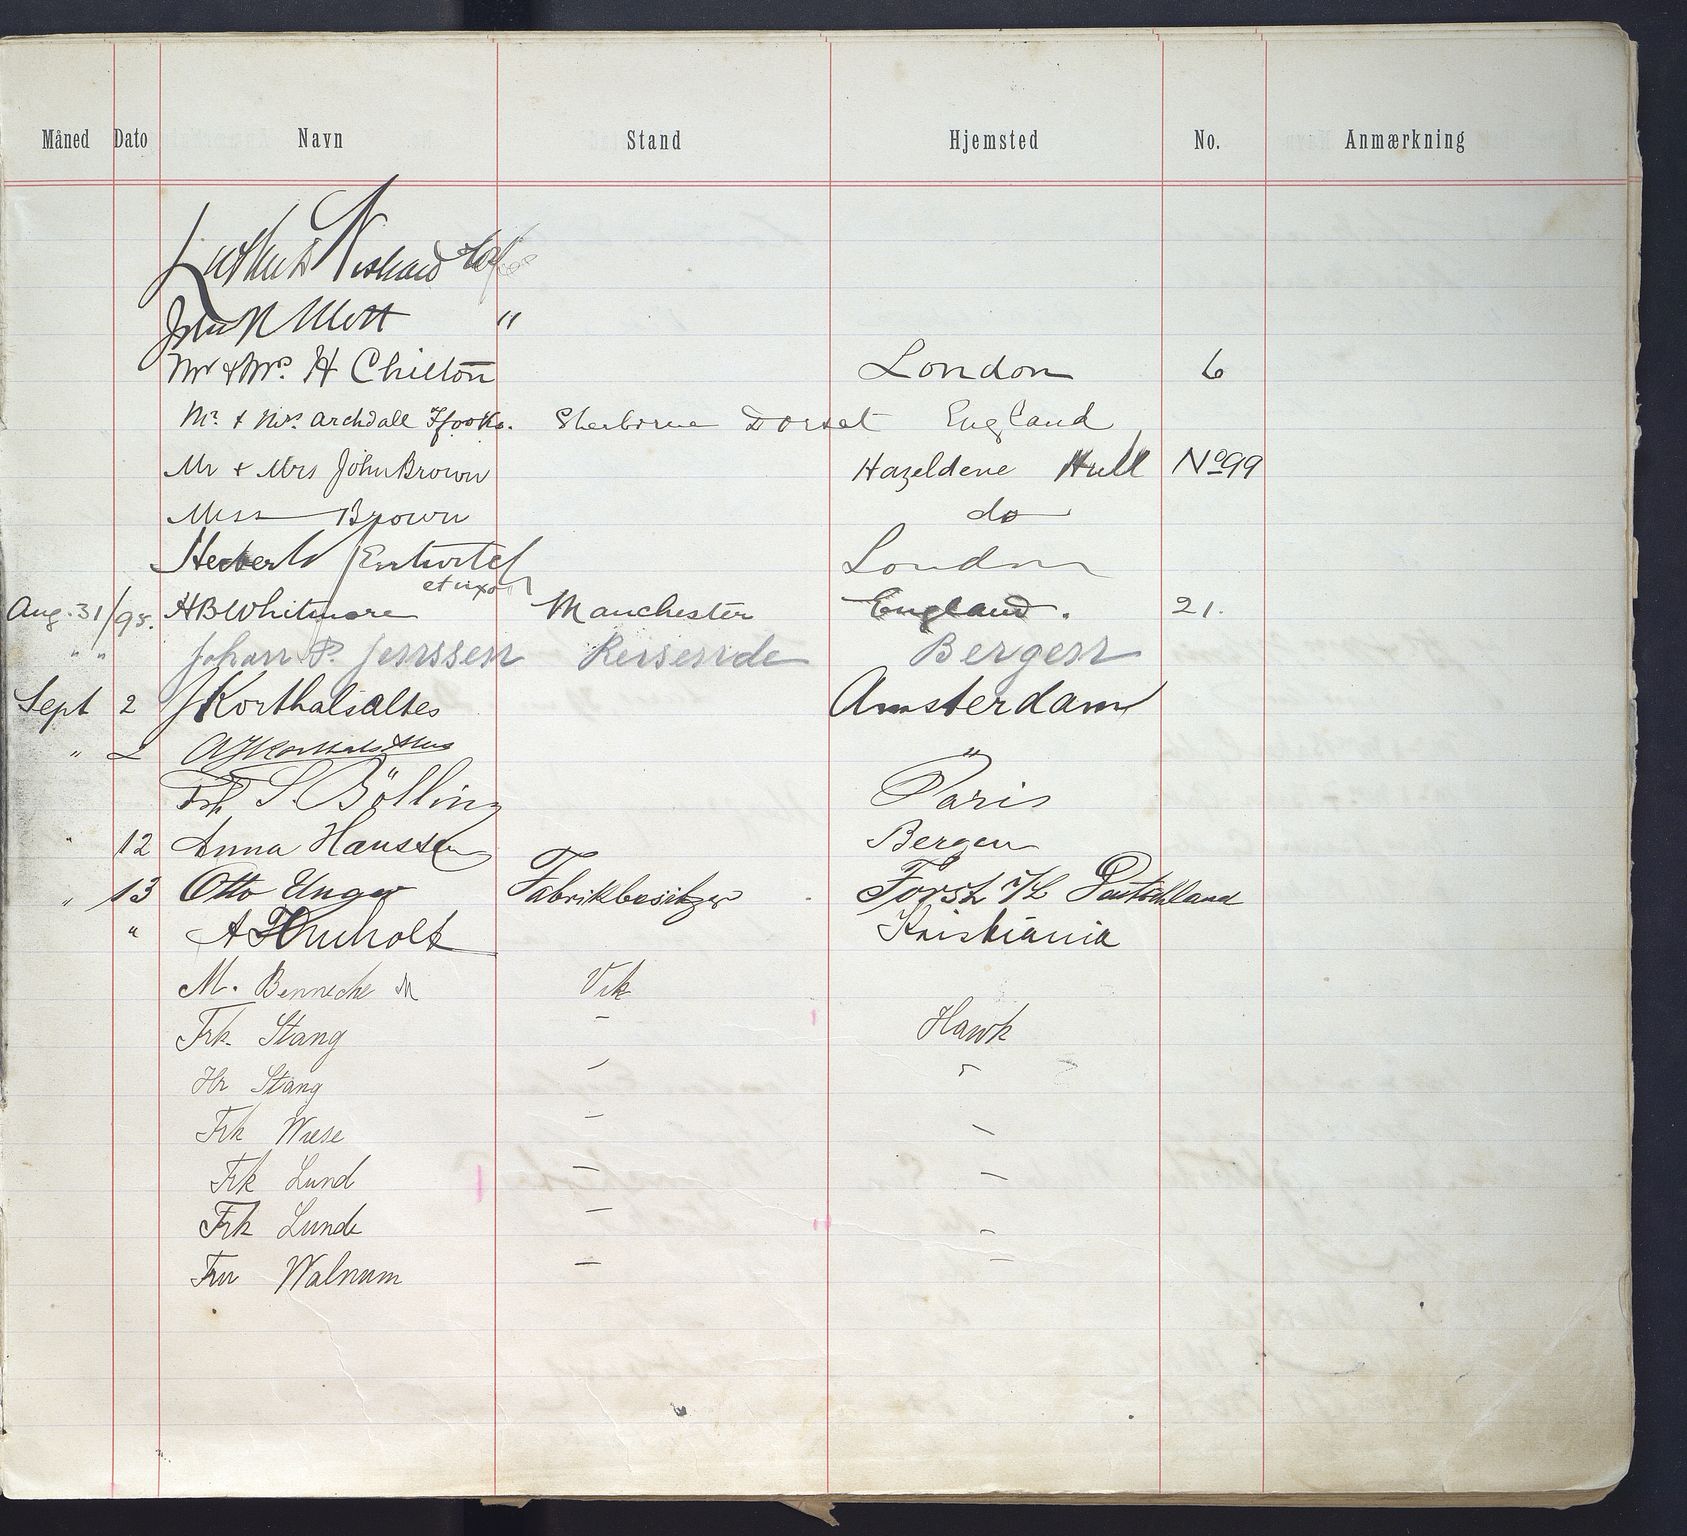 Måned Dato Navn Stand Hjemsted No. Anmærkning
John R Mott "
Mr & Mrs. H Chilton London 6
Mr. & Mrs. Archdall Ffooks. Sherborne Dorset England
Mr & Mrs John Brown Hazeldene Hull No 99
Miss Brown do
Herbert Entwistel London
et uxor
Aug. 31/98. HB Whitmore Manchester England. 21.
" " Johan P. Jenssen Reisende Bergen
Sept 2 J Korthalsaltes Amsterdam
" 2 "
Frk S. Bölling Paris
" 12 Anna Hanssen Bergen
" 13 Otto Unger Fabrikbesitzer Forst i/L Deutschland
" Kristiania
M. Benneche Vik
Frk. Stang – Hawk
Hr Stang – –
Frk Wiese – –
Frk Lund – –
Frk Lunde – –
Fru Walnum – –